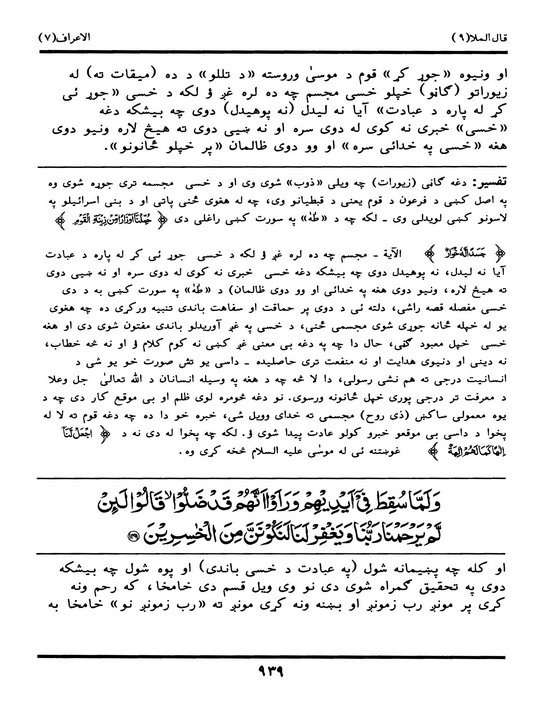 قال الملا(۹)
الاعراف(۷)
او ونيوه «جوړ کړ» قوم د موسیٰ وروسته «د تللو» د ده (ميقات ته) له
زيوراتو (ګاڼو) خپلو خسی مجسم چه ده لره غږ ؤ لکه د خسی «جوړ ئی
کړ له پاره د عبادت» آيا نه ليدل (نه پوهيدل) دوی چه بيشکه دغه
«خسی» خبری نه کوی له دوی سره او نه ښيی دوی ته هيڅ لاره ونيو دوی
هغه «خسی په خدائی سره» او وو دوی ظالمان «پر خپلو ځانونو».
تفسير: دغه ګاڼی (زيورات) چه ويلی «ذوب» شوی وی او د خسی مجسمه تری جوړه شوی وه
په اصل کښی د فرعون د قوم يعنی د قبطيانو وی، چه له هغوی څخه پاتی او د بنی اسرائيلو په
لاسونو کښی لويدلی وی ـ لکه چه د «طٰهٰ» په سورت کښی راغلی دی ﴿ حُمِّلْنَا أَوْزَارًا مِّن زِينَةِ الْقَوْمِ ﴾
﴿ جَسَدًا لَّهُ خُوَارٌ ﴾ الآية ـ مجسم چه ده لره غږ ؤ لکه د خسی جوړ ئی کړ له پاره د عبادت
آيا نه ليدل، نه پوهيدل دوی چه بيشکه دغه خسی خبری نه کوی له دوی سره او نه ښيی دوی
ته هيڅ لاره، ونيو دوی هغه په خدائی او وو دوی ظالمان) د «طٰهٰ» په سورت کښی به د دی
خسی مفصله قصه راشی، دلته ئی د دوی پر حماقت او سفاهت باندی تنبيه ورکړی ده چه هغوی
يو له خپله ځانه جوړی شوی مجسمی څنی، د خسی په غږ آوريدلو باندی مفتون شوی دی او هغه
خسی خپل معبود ګڼی، حال دا چه په دغه بی معنی غږ کښی نه کوم کلام ؤ او نه څه خطاب،
نه دينی او دنيوی هدايت او نه منفعت تری حاصليده ـ داسی يو تش صورت خو يو شی د
انسانيت درجی ته هم نشی رسولی، دا لا څه چه د هغه په وسيله انسانان د الله تعالیٰ جل وعلا
د معرفت تر درجی پوری خپل ځانونه ورسوی. نو دغه څومره لوی ظلم او بی موقع کار دی چه د
يوه معمولی ساکښ (ذی روح) مجسمی ته خدای وويل شی، خبره خو دا ده چه دغه قوم ته لا له
پخوا د داسی بی موقعو خبرو کولو عادت پيدا شوی ؤ. لکه چه پخوا له دی نه د ﴿ اجْعَل لَّنَا
إِلَٰهًا كَمَا لَهُمْ آلِهَةٌ ﴾ غوښتنه ئی له موسیٰ عليه السلام څخه کړی وه.
وَلَمَّا سُقِطَ فِيْٓ اَيْدِيْهِمْ وَرَاَوْا اَنَّهُمْ قَدْ ضَلُّوْا ۙ قَالُوْا لَىِٕنْ
لَّمْ يَرْحَمْنَا رَبُّنَا وَيَغْفِرْ لَنَا لَنَكُوْنَنَّ مِنَ الْخٰسِرِيْنَ ﴿۱۴۹﴾
او کله چه پښيمانه شول (په عبادت د خسی باندی) او پوه شول چه بيشکه
دوی په تحقيق ګمراه شوی دی نو وی ويل قسم دی خامخا، که رحم ونه
کړی پر مونږ رب زمونږ او بښنه ونه کړی مونږ ته «رب زمونږ نو» خامخا به
۹۳۹